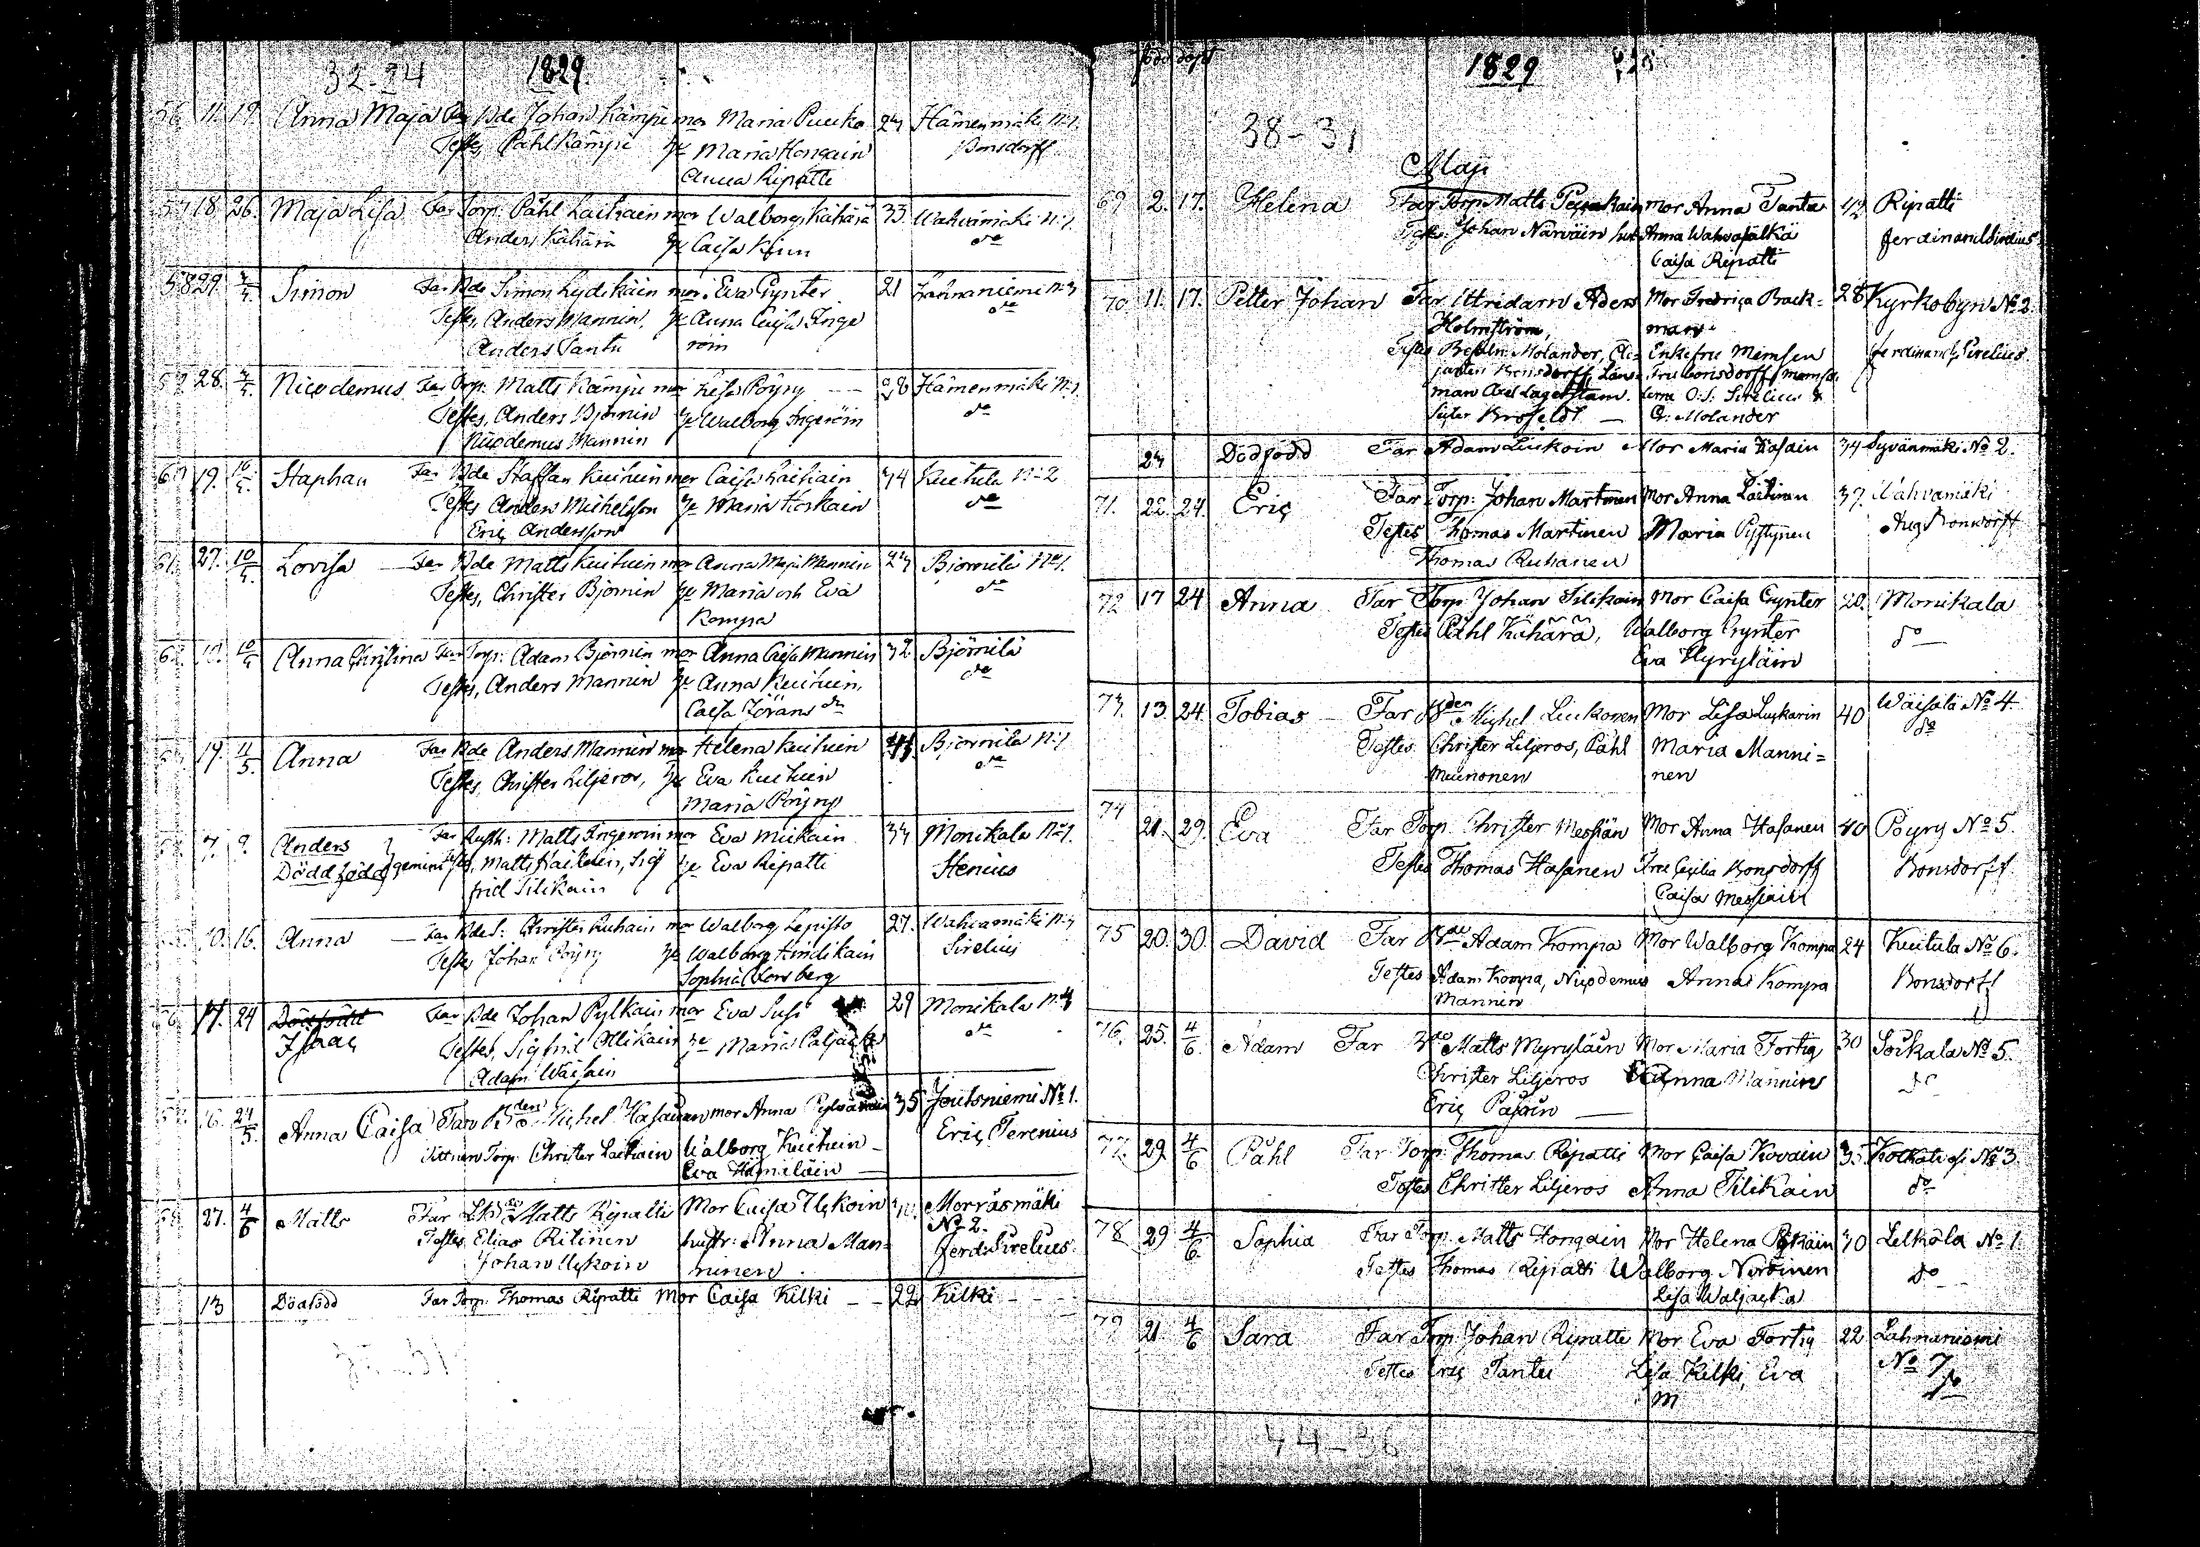 32-24 1829
56 11. 19. Anna Maja Far Bde Johan Kämpi mor Maria Pucko 24 Hämenmäki N:1.
Testes Påhl Kämpi Je Maria Hongain Bonsdorff
Anna Ripatti
57 18. 26. Maja Lisa Far Torp. Påhl Laihain mor Walborg Kähärä 33. Wahvamäki N:1
Anders Kähärä Je Caisa do
58 29. Simon Far Bde Simon mor. Eva Gynter 21 Lahnaniemi N:3
Testes, Anders Mannin, Je Anna Caisa Inge do
Anders Tantu röin
59. 28. Nicodemus Far Torp. Matts Kämpi mor Lisa Pöyry 28 Hämenmäki N:1
Testes, Anders Björnin Je Walborg Ingeröin do
Nicodemus Mannin
60 19. Staphan Far Bde Staffan Kuituin mor Caisa Laihain 34 Kuitula N:2
Testes Anders Michelsson Je Maria Koskain do
Eric Andersson
61. 27. 10/5. Lovisa Far Bde Matts Kuituin mor Anna Maja Mannin 24 Björnilä N:1.
Testes, Christer Björnin Je Maria och Eva do
Kompa
62. 10/5 Anna Christina Far Torp. Adam Björnin mor Anna Caisa Mannin 32 Björnilä
Testes, Anders Mannin Je Anna Kuituin, do
Caisa Görans dr
19. 4/5. Anna Far Bde Anders Mannin mor Helena Kuituin Björnilä N:1
Testes, Christer Liljeros, Je Eva Kuituin do
Maria Pöyry
7. 9. Anders Far Rusth: Matts Ingeröin mor Eva Miikain 33 Monikala N:1.
Dödfödd gemini Testes, Matts Sig Je Eva Ripatti Stenius
frid Tilikain
10. 16. Anna Far Bde S: Christer Ruhain mor Walborg Lepistö 27. Wahvamäki N:
Testes Johan Pöyry Je Walborg Hindikain Sirelius
Sophia Forsberg
17. 24 Dödfödd Far Bde Johan Pylkain mor Eva Susi 29 Monikala N:4
Isaac Testes, Sigfrid Ollikain Je Maria do
Adam Waisain
16. 24/5. Anna Caisa Far Bden Michel Hasainan mor Anna 35 Joutsniemi No 1.
Vittnen Torp. Christer Laihain Walborg Kuituin Eric Terenius
Eva Hämäläin
27. 4/6 Matts Far Matts Ripatti Mor Caisa Uskoin Morräsmäki
Testes Elias Ritinin hustr: Anna Man- No 2.
Johan Uskoin ninen. Ferd: Sirelius
13 Dödfödd Far Torp. Thomas Ripatti Mor Caisa Kilki 22 Kilki
född döpt 1829
38-31
Maji
69 2. 17. Helena Far Torp Matts mor Anna Tantu 42 Ripatti
Testes. Johan Närväin hust Anna Wahvaselkä Ferdinand Sirelius
Caisa Ripatti
70. 11. 17. Petter Johan Far Uttridarn Aders Mor Fredrica Brack= 28 Kyrkobyn No 2.
Holmström, man
Testes Molander, Enkefru Mimsen Ferdinand Sirelius
Bonsdorff, Läns= Fru Bonsdorff, Mamse
man Axel Lagerstam. lerna O. S. Sirelius &
C: Molander
24 Dödfödd Far Adam Liukoin Mor Maria Hasain 34 Syvänmäki No 2.
71. 22. 24. Eric Far Torp: Johan Martinen Mor Anna Laitinen 37. Wahvamäki
Testes Thomas Martinen Maria Pystynen Aug Bonsdorff
Thomas Ruhanen
72 17 24 Anna Far Torp Johan Tilikain Mor Caisa Gynter 20. Monikala
Testes Påhl Kähärä, Walborg Gynter do
Eva Hyryläin
73. 13. 24. Tobias Far Bden Michel Liukonen Mor Lisa Luskarin 40 Wäisälä No 4.
Testes Christer Liljeros, Påhl Maria Manni= do
Muinonen nen
74 21. 29. Eva Far Torp. Christer Messiän Mor Anna Hasanen 40 Pöyry No 5.
Testes Thomas Hasanen Frue Cecilia Bonsdorff Bonsdorff
Caisa Messiäin
75 20. 30. David Far Bde Adam Kompa Mor Walborg Kompa 24 Kuitula No 6.
Testes Adam Kompa, Nicodemus Anna Kompa Bonsdorff
Mannin
76. 25. 4/6. Adam Far Bde Matts Myryläin Mor Maria Fortig 30 Soikala No 5.
Christer Liljeros Anna Mannin do
Eric Pasain
77. 29. 4/6 Påhl Far Torp. Thomas Ripatti Mor Caisa Kovain 35 No 3.
Testes Christer Liljeros Anna Tilikain do
78 29 4/6. Sophia Far Torp. Matts Hongain Mor Helena 30 Lelkölä No 1.
Testes Thomas Ripatti Walborg Nirönen do
Lisa Waljacka
79 21. 4/6 Sara Far Torp. Johan Ripatti Mor Eva Fortig 22 Lahnaniemi
Testes Eric Tantu Lisa Kilki, Eva No 7
M do
44-36